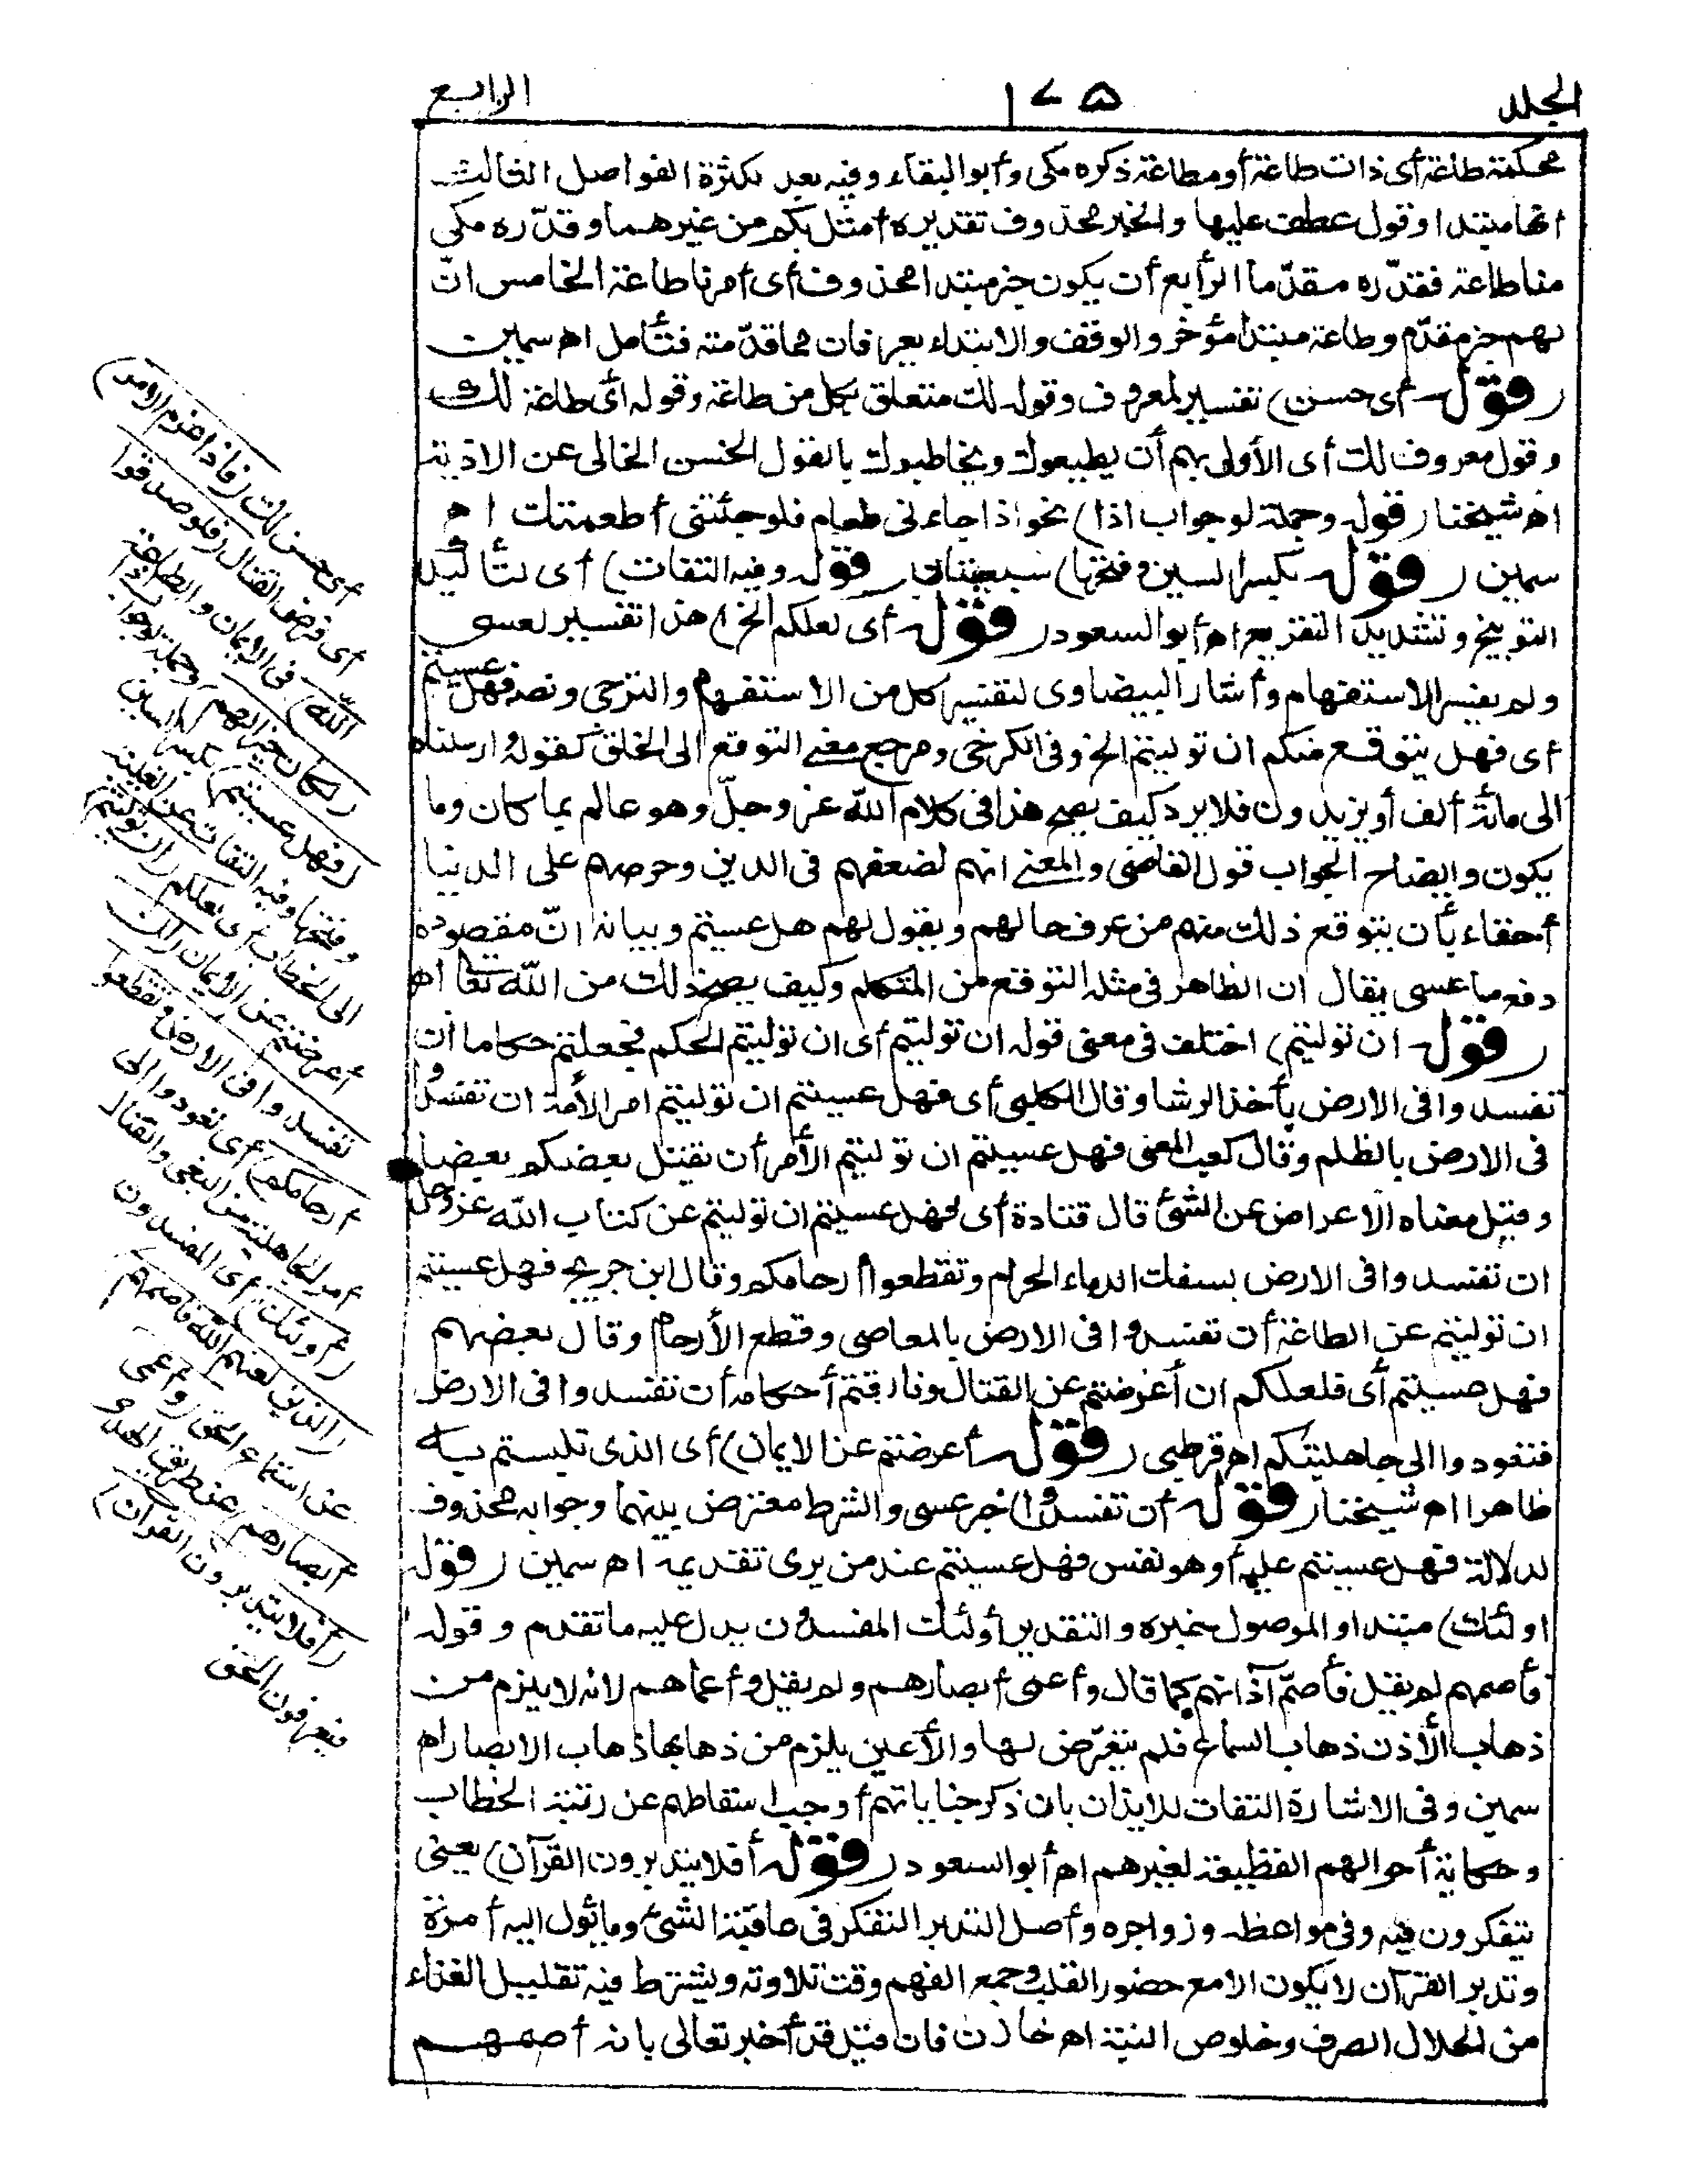 الجلد
١٧٥
الرابع
محكمة طاعة أى ذات طاعة أو مطاعة ذكره مكى وأبو البقاء وفيه بعد بكثرة الفواصل الثالث
انها مبتدا وقول عطف عليها والخبر محذوف تقديره أمثل بكم من غيرهما وقدّره مكى
منا طاعة فقدّره مقدّما الرابع أن يكون خبر مبتدا محذوف أى أمرنا طاعة الخامس انّ
لهم خبر مقدّم وطاعة مبتدا مؤخر والوقف والابتداء يعرفان مما قدّمته فتأمل اه سمين
(قوله أى حسن) تفسير لمعروف وقوله لك متعلق بكل من طاعة وقوله أى طاعة لك
وقول معروف لك أى الأولى بهم أن يطيعوك ويخاطبوك بالقول الحسن الخالى عن الاذية
اه شيخنا (قوله وجملة لو جواب اذا) نحو اذا جاءنى طعام فلو جئتنى أطعمتك اه
سمين (قوله بكسر السين وفتحها) سبعيتان (قوله وفيه التفات) أى لتأكيد
التوبيخ وتشديد التقريع اه أبو السعود (قوله أى لعلكم الخ) هذا تفسير لعسى
ولم يفسر الاستفهام وأشار البيضاوى لتفسير كل من الاستفهام والترجى ونصه فهل عسيتم
أى فهل يتوقع منكم ان توليتم الخ وفى الكرخى ومرجع معنى التوقع الى الخلق كقوله وارسلناه
الى مائة ألف أو يزيدون فلا يرد كيف يصح هذا فى كلام الله عز وجلّ وهو عالم بما كان وما
يكون وايضاح الجواب قول القاضى والمعنى انهم لضعفهم فى الدين وحرصهم على الدنيا
أحقاء بأن يتوقع ذلك منهم من عرف حالهم ويقول لهم هل عسيتم وبيانه انّ مقصوده
دفع ما عسى يقال ان الظاهر فى مثله التوقع من المتكلم وكيف يصح ذلك من الله تعا اه
(قوله ان توليتم) اختلف فى معنى قوله ان توليتم أى ان توليتم الحكم فجعلتم حكاما ان
تفسدوا فى الارض بأخذ الرشا وقال الكلبى أى فهل عسيتم ان توليتم امر الأمة ان تفسدوا
فى الارض بالظلم وقال كعب المعنى فهل عسيتم ان توليتم الأمر أن يقتل بعضكم بعضا
وقيل معناه الاعراض عن الشئ قال قتادة أى فهل عسيتم ان توليتم عن كتاب الله عز وجل
ان تفسدوا فى الارض بسفك الدماء الحرام وتقطعوا أرحامكم وقال ابن جريج فهل عسيتم
ان توليتم عن الطاعة أن تفسدوا فى الارض بالمعاصى وقطع الأرحام وقال بعضهم
فهل عسيتم أى فلعلكم ان أعرضتم عن القتال وفارقتم أحكامه أن تفسدوا فى الارض
فتعودوا الى جاهليتكم اه قرطبى (قوله أعرضتم عن الايمان) أى الذى تلبستم به
ظاهرا اه شيخنا (قوله أن تفسدوا) خبر عسى والشرط معترض بينهما وجوابه محذوف
لدلالة فهل عسيتم عليه أو هو نفس فهل عسيتم عند من يرى تقديمه اه سمين (قوله
اولئك) مبتدا والموصول خبره والتقدير أولئك المفسدون يدل عليه ما تقدم وقوله
فأصمهم لم يقل فأصمّ آذانهم كما قال وأعمى أبصارهم ولم يقل وأعماهم لانه لا يلزم من
ذهاب الأذن ذهاب السماع فلم يتعرّض لها والأعين يلزم من ذهابها ذهاب الابصار اه
سمين وفى الاشارة التفات للايذان بان ذكر جناياتهم أوجب اسقاطهم عن رتبة الخطاب
وحكاية أحوالهم الفظيعة لغيرهم اه أبو السعود (قوله أفلا يتدبرون القرآن) يعنى
يتفكرون فيه وفى مواعظه وزواجره وأصل التدبر التفكر فى عاقبة الشئ وما يئول اليه أمره
وتدبر القرآن لا يكون الا مع حضور القلب وجمع الفهم وقت تلاوته ويشترط فيه تقليل الغذاء
من الحلال الصرف وخلوص النية اه خازن فان قيل قد أخبر تعالى بانه أصمهم
أى حسن لك (فاذا عزم الامر)
أى فرض القتال (فلو صدقوا
الله) فى الايمان والطاعة
(لكان خيرا لهم) وجملة لو جواب اذا
(فهل عسيتم) بكسر السين
وفتحها وفيه التفات عن الغيبة
الى الخطاب أى لعلكم (ان توليتم)
أعرضتم عن الايمان (أن
تفسدوا فى الارض وتقطعوا
أرحامكم) أى تعودوا الى
أمر الجاهلية من البغى والقتال
(أولئك) أى المفسدون
(الذين لعنهم الله فأصمهم)
عن استماع الحق (وأعمى
أبصارهم) عن طريق الهدى
(أفلا يتدبرون القرآن)
فيعرفون الحق